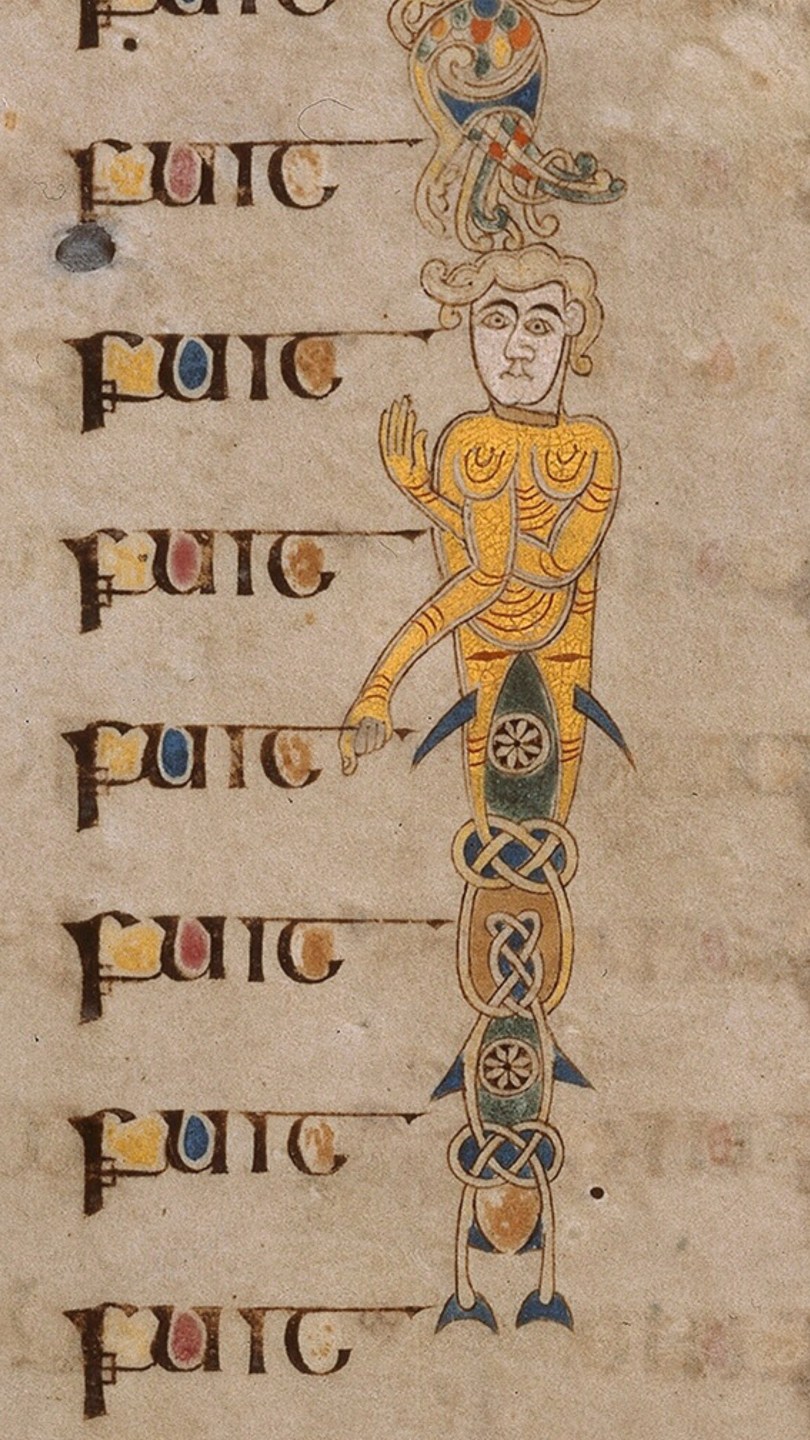 fuit
fuit
fuit
fuit
fuit
fuit
fuit